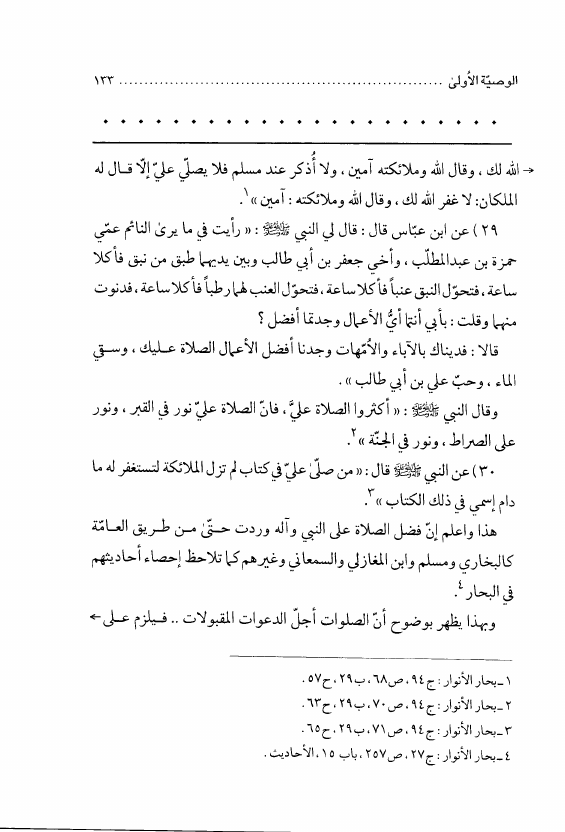 الوصيّة الأولىٰ ................................................................ ١٣٣
← الله لك ، وقال الله وملائكته آمين ، ولا أُذكر عند مسلم فلا يصلّي عليّ إلّا قـال له
الملكان: لا غفر الله لك ، وقال الله وملائكته : آمين »١.
٢٩ ) عن ابن عبّاس قال : قال لي النبي ﷺ : « رأيت في ما يرىٰ النائم عمّي
حمزة بن عبدالمطلّب ، وأخي جعفر بن أبي طالب وبين يديهما طبق من نبق فأكلا
ساعة ، فتحوّل النبق عنباً فأكلا ساعة ، فتحوّل العنب لهما رطباً فأكلا ساعة ، فدنوت
منهما وقلت : بأبي أنتما أيُّ الأعمال وجدتما أفضل ؟
قالا : فديناك بالآباء والأُمّهات وجدنا أفضل الأعمال الصلاة عـليك ، وسـقي
الماء ، وحبّ علي بن أبي طالب » .
وقال النبي ﷺ : « أكثروا الصلاة عليَّ ، فانّ الصلاة عليّ نور في القبر ، ونور
على الصراط ، ونور في الجنّة »٢.
٣٠ ) عن النبي ﷺ قال : « من صلّىٰ عليّ في كتاب لم تزل الملائكة لتستغفر له ما
دام إسمي في ذلك الكتاب »٣.
هذا واعلم إنّ فضل الصلاة على النبي وآله وردت حـتّىٰ مـن طـريق العـامّة
كالبخاري ومسلم وابن المغازلي والسمعاني وغيرهم كما تلاحظ إحصاء أحاديثهم
في البحار٤.
وبهذا يظهر بوضوح أنّ الصلوات أجلّ الدعوات المقبولات .. فـيلزم عـلى ←
١ ـ بحار الأنوار : ج ٩٤ ، ص ٦٨ ، ب ٢٩ ، ح ٥٧ .
٢ ـ بحار الأنوار : ج ٩٤ ، ص ٧٠ ، ب ٢٩ ، ح ٦٣ .
٣ ـ بحار الأنوار : ج ٩٤ ، ص ٧١ ، ب ٢٩ ، ح ٦٥ .
٤ ـ بحار الأنوار : ج ٢٧ ، ص ٢٥٧ ، باب ١٥ ، الأحاديث .